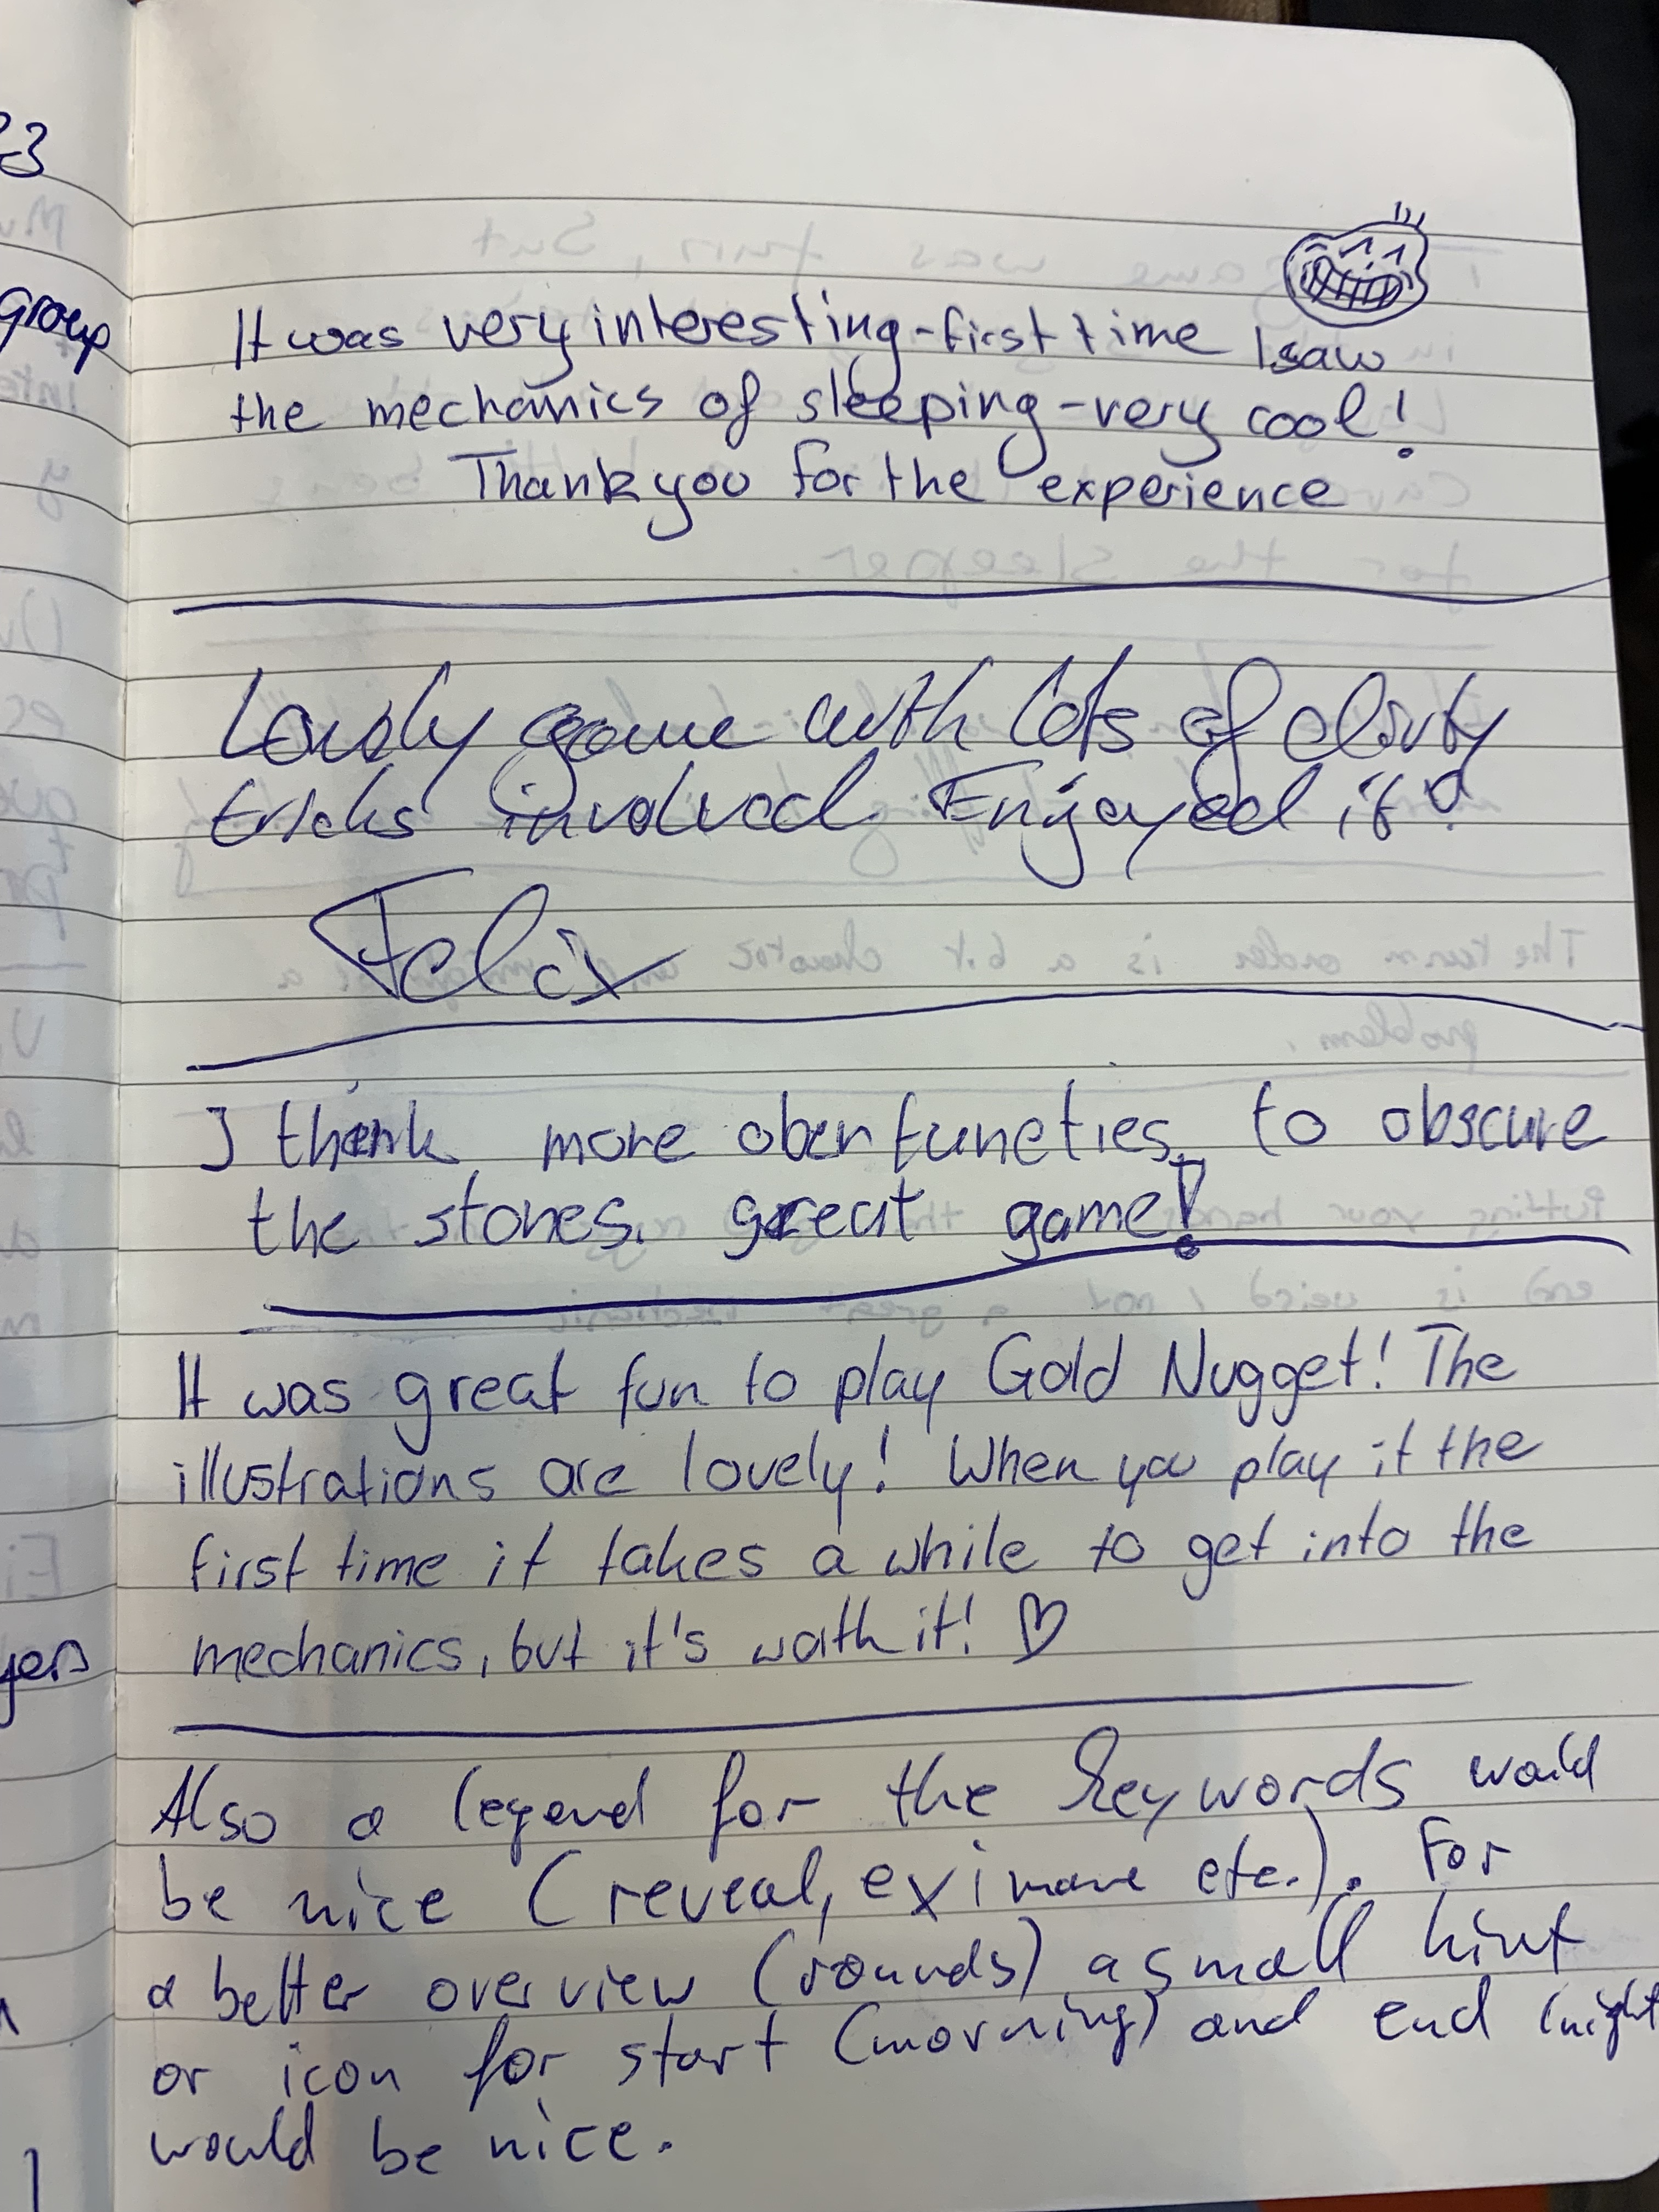 23
group
It was very interesting-first time I saw
the mechanics of sleeping-very cool!
Thank you for the experience
Lovely game with lots of dirty
tricks involved. Enjoyed it!
Felix
I think more obertuneties to obscure
the stones. great game!
It was great fun to play Gold Nugget! The
illustrations are lovely! When you play it the
first time it takes a while to get into the
mechanics, but it's worth it! ♡
yers
Also a legend for the keywords would
be nice (reveal, eximane etc.). For
a better overview (rounds) a small hint
or icon for start (morning) and end (night
would be nice.